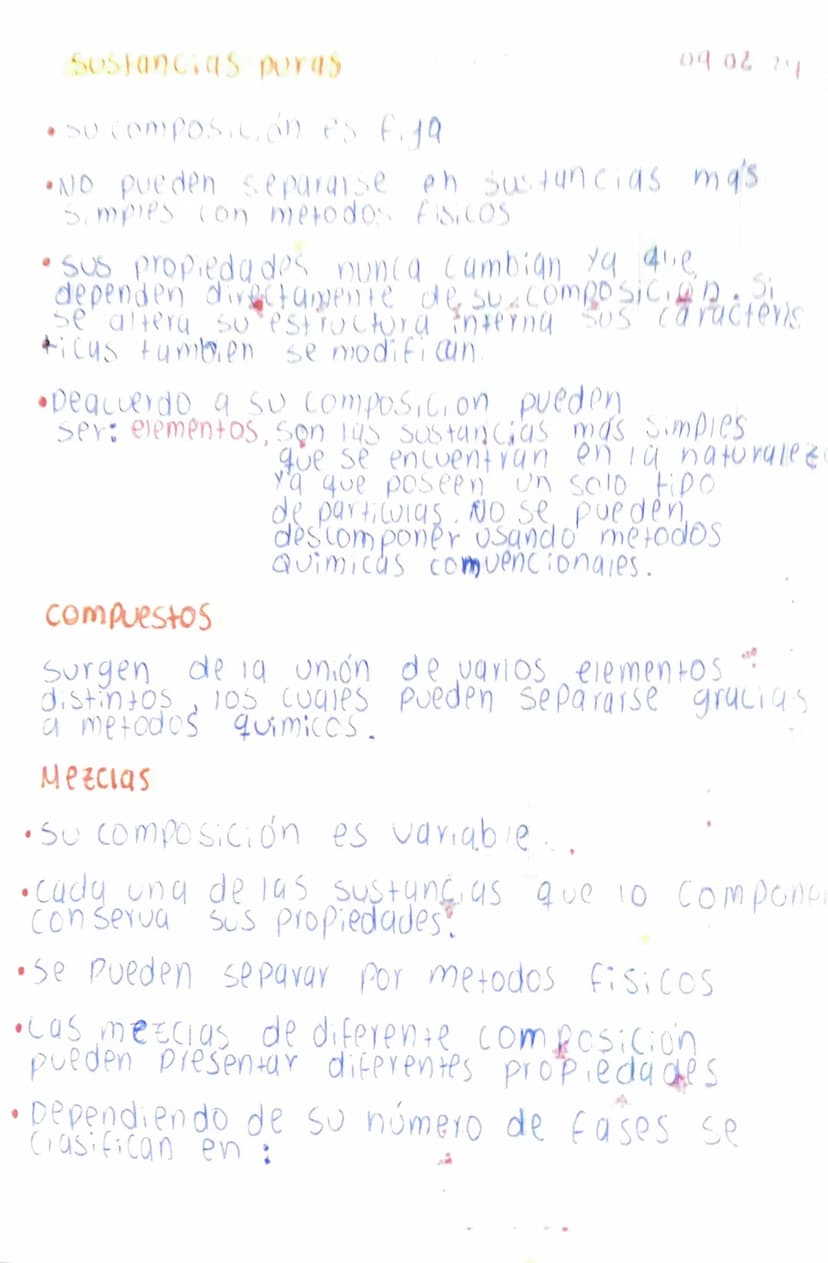 Sustancias puras
09 02
• su composición es fija
• NO pueden separarse en sustancias más
simples con metodos fisicos
• sus propiedades nunca cambian ya que
dependen directamente de su composición. Si
se altera su estructura interna sus caracteris
ticas tambien se modifican.
• Deacuerdo a su composicion pueden
ser: elementos, son las sustancias más simples
que se encuentran en la naturalez
ya que poseen un solo tipo
de particulas. NO se pueden
descomponer usando metodos
quimicas comvencionales.
compuestos
surgen de la unión de varios elementos
distintos, los cuales pueden separarse gracias
a metodos quimicos.
Mezclas
• su composición es variable.
• cada una de las sustancias que lo componen
conserva sus propiedades.
• se pueden separar por metodos fisicos
• Las mezclas de diferente composición
pueden presentar diferentes propiedades
• Dependiendo de su número de fases se
clasifican en: